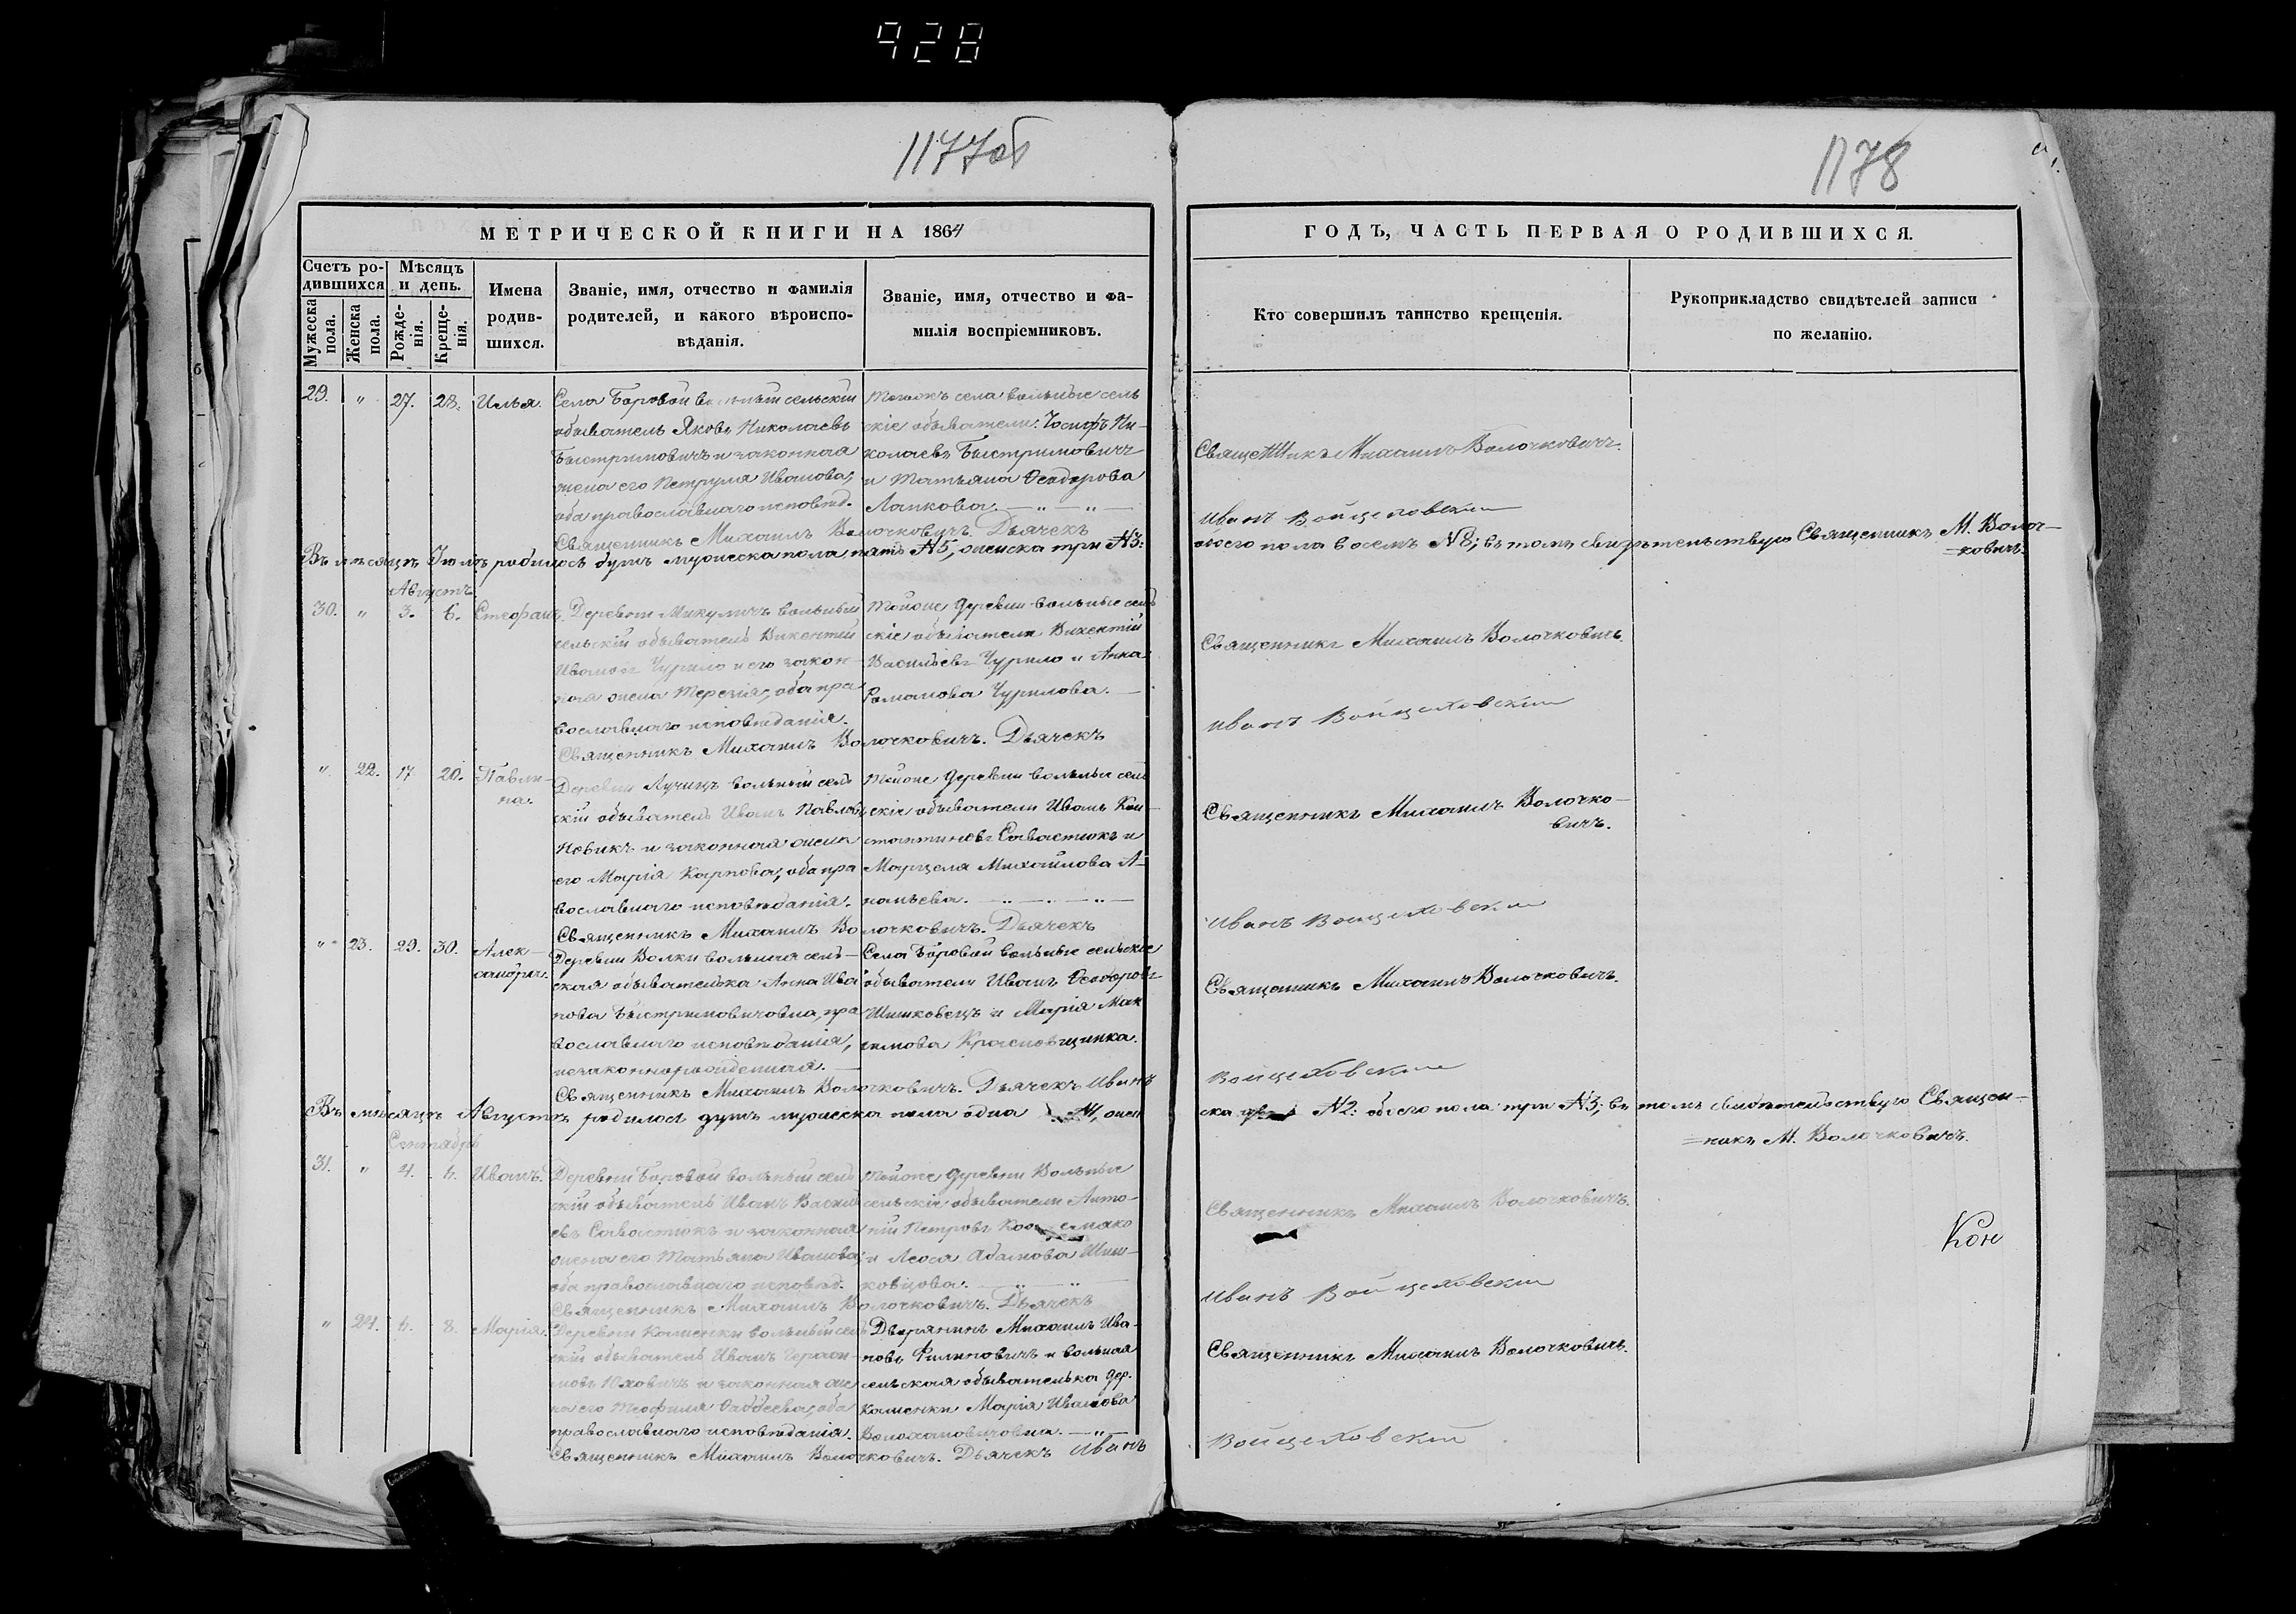 928
1177об
1178
МЕТРИЧЕСКОЙ КНИГИ НА 1864
ГОДЪ, ЧАСТЬ ПЕРВАЯ О РОДИВШИХСЯ.
Счетъ ро-
дившихся
Мужеска
пола.
Женска
пола.
Мѣсяцъ
и день.
Рожде-
нія.
Креще-
нія.
Имена
родив-
шихся.
Званіе, имя, отчество и фамилія
родителей, и какого вѣроиспо-
вѣданія.
Званіе, имя, отчество и фа-
милія воспріемниковъ.
Кто совершилъ таинство крещенія.
Рукоприкладство свидѣтелей записи
по желанію.
29. " 27. 28. Илья.
Села Боровой вольный сельскій
обыватель Яковъ Николаевъ
Быстримовичъ и законная
жена его Петруля Иванова,
оба православнаго исповѣд.
села вольные сель
скіе обыватели: Іосифъ Ни-
колаевъ Быстримовичъ
и Татьяна Ѳеодорова
Лапкова.
Священникъ Михаилъ Волочковичъ.
Священникъ Михаилъ Волочковичъ. Дьячекъ
Иванъ Войцеховскій
Въ мѣсяцѣ Іюлѣ родилось душъ мужеска пола пять №5, женска три №3:
обоего пола восемь №8; въ томъ свидѣтельствую Священникъ М. Волоч-
ковичъ.
Августъ
30. " 3. 6. Стефанъ.
Деревни Микуличъ вольный
сельскій обыватель Викентій
Ивановъ Чурило и его закон-
ная жена Терезія, оба пра
вославнаго исповѣданія.
Тойже деревни вольные сель
скіе обыватели Викентій
Васильевъ Чурило и Анна
Романова Чурилова.
Священникъ Михаилъ Волочковичъ.
Священникъ Михаилъ Волочковичъ. Дьячекъ
Иванъ Войцеховскій
" 22. 17 20. Павли-
на.
Деревни Лучицъ вольный сель
скій обыватель Иванъ Павловъ
Новикъ и законная жена
его Марія Карпова, оба пра
вославнаго исповѣданія.
Тойже деревни вольные сель
скіе обыватели Иванъ Кон-
стантиновъ Савастюкъ и
Марцеля Михайлова А-
наньева.
Священникъ Михаилъ Волочко-
вичъ.
Священникъ Михаилъ Волочковичъ. Дьячекъ
Иванъ Войцеховскій
" 23. 29. 30. Алек-
сандра.
Деревни Волки вольная сель-
ская обывателька Анна Ива
нова Быстримовичовна, пра
вославнаго исповѣданія,
незаконнорожденная.
Села Боровой вольные сельскіе
обыватели Иванъ Ѳеодоровъ
Шишковецъ и Марія Мак
симова Красновщинка.
Священникъ Михаилъ Волочковичъ.
Священникъ Михаилъ Волочковичъ. Дьячекъ Иванъ
Войцеховскій
Въ мѣсяцѣ Августѣ родилось душъ мужеска пола одна №1, жен
ска №2: обоего пола три №3; въ томъ свидѣтельствую Священ-
никъ М. Волочковичъ.
Сентябрь
31. " 4. 6. Иванъ.
Деревни Боровой вольный сель
скій обыватель Иванъ Василь
евъ Савастюкъ и законная
жена его Татьяна Иванова,
оба православнаго исповѣд.
Тойже деревни Вольные
сельскіе обыватели Анто-
ній Петровъ
и Леося Адамова Шиш-
ковцова.
Священникъ Михаилъ Волочковичъ.
Кон
Священникъ Михаилъ Волочковичъ. Дьячекъ
Иванъ Войцеховскій
" 24. 6. 8. Марія.
Деревни Каменки вольный сель
скій обыватель Иванъ Герасі-
мовъ Юховичъ и законная же
на его Теофиля Ѳаддеева, оба
православнаго исповѣданія.
Дворянинъ Михаилъ Ива-
новъ Филиповичъ и вольная
сельская обывателька дер.
Каменки Марія Иванова
Волохановичовна.
Священникъ Михаилъ Волочковичъ.
Священникъ Михаилъ Волочковичъ. Дьячекъ Иванъ
Войцеховскій